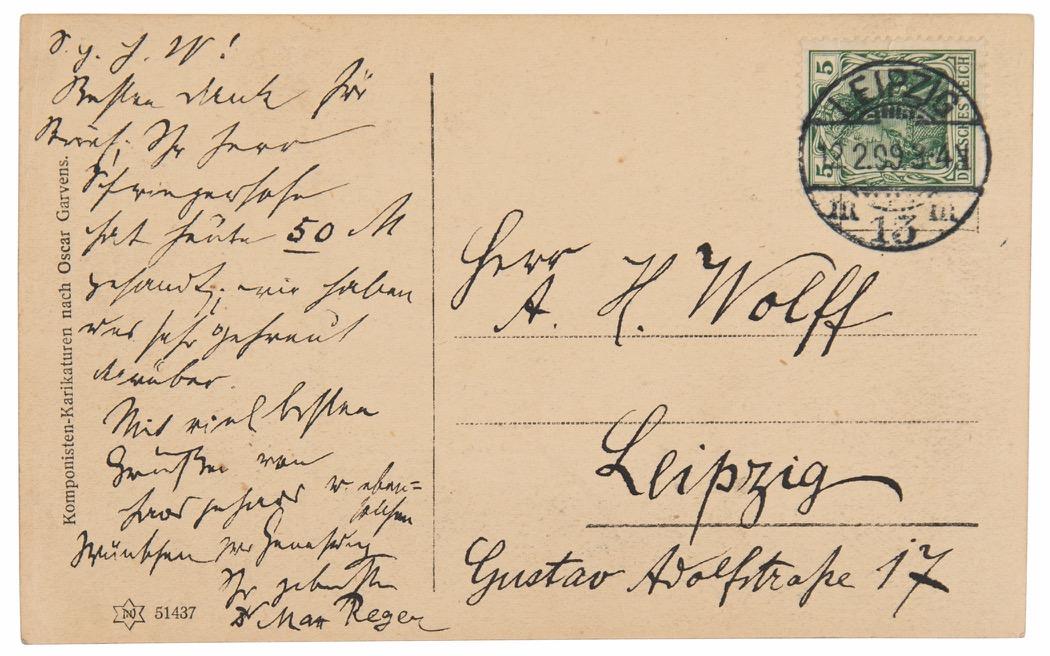 S. g. H. W!
Besten Dank für
Brief; Ihr Herr
hat heute 50 M
gesandt; wir haben
uns sehr gefreut
darüber.
Mit viel besten
Grüßen von
Haus zu Haus u. eben=
solchen
Wünschen zur Genesung
Ihr
Dr Max Reger
Komponisten-Karikaturen nach Oscar Garvens.
51437
DEUTSCHES REICH
5
5
LEIPZIG
2.09
13
Herr
A. H. Wolff
Leipzig
Gustav Adolfstraße 17